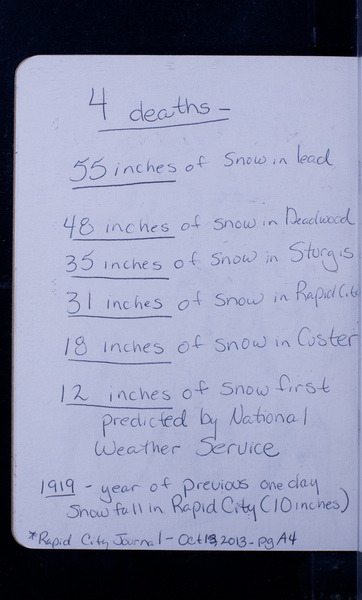 4 deaths -
55 inches of snow in lead
48 inches of snow in Deadwood
35 inches of snow in Sturgis
31 inches of snow in Rapid City
18 inches of snow in Custer
12 inches of snow first
predicted by National
Weather Service
1919 - year of previous one day
snowfall in Rapid City (10 inches)
*Rapid City Journal - Oct 13, 2013 - pg A4